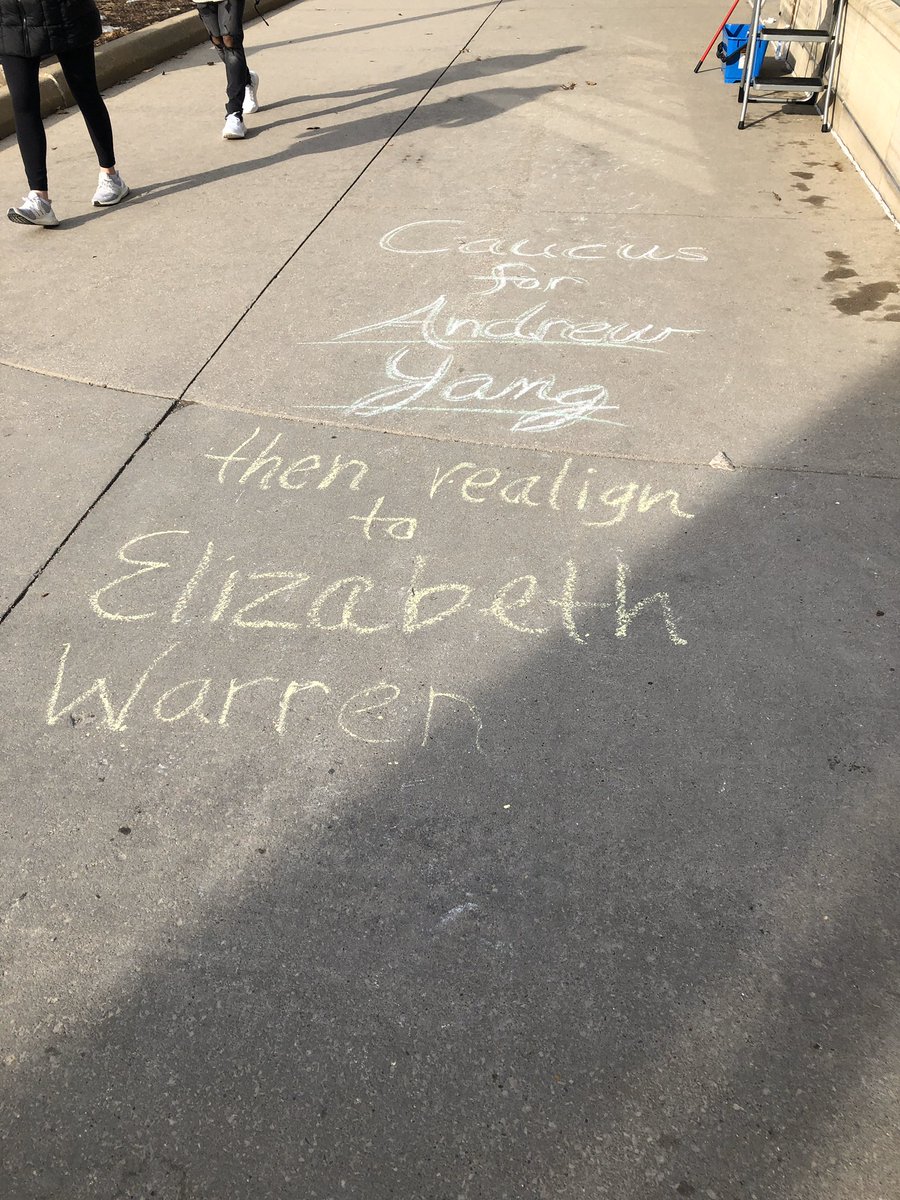 Caucus
for
Andrew
Yang
then realign
to
Elizabeth
Warren